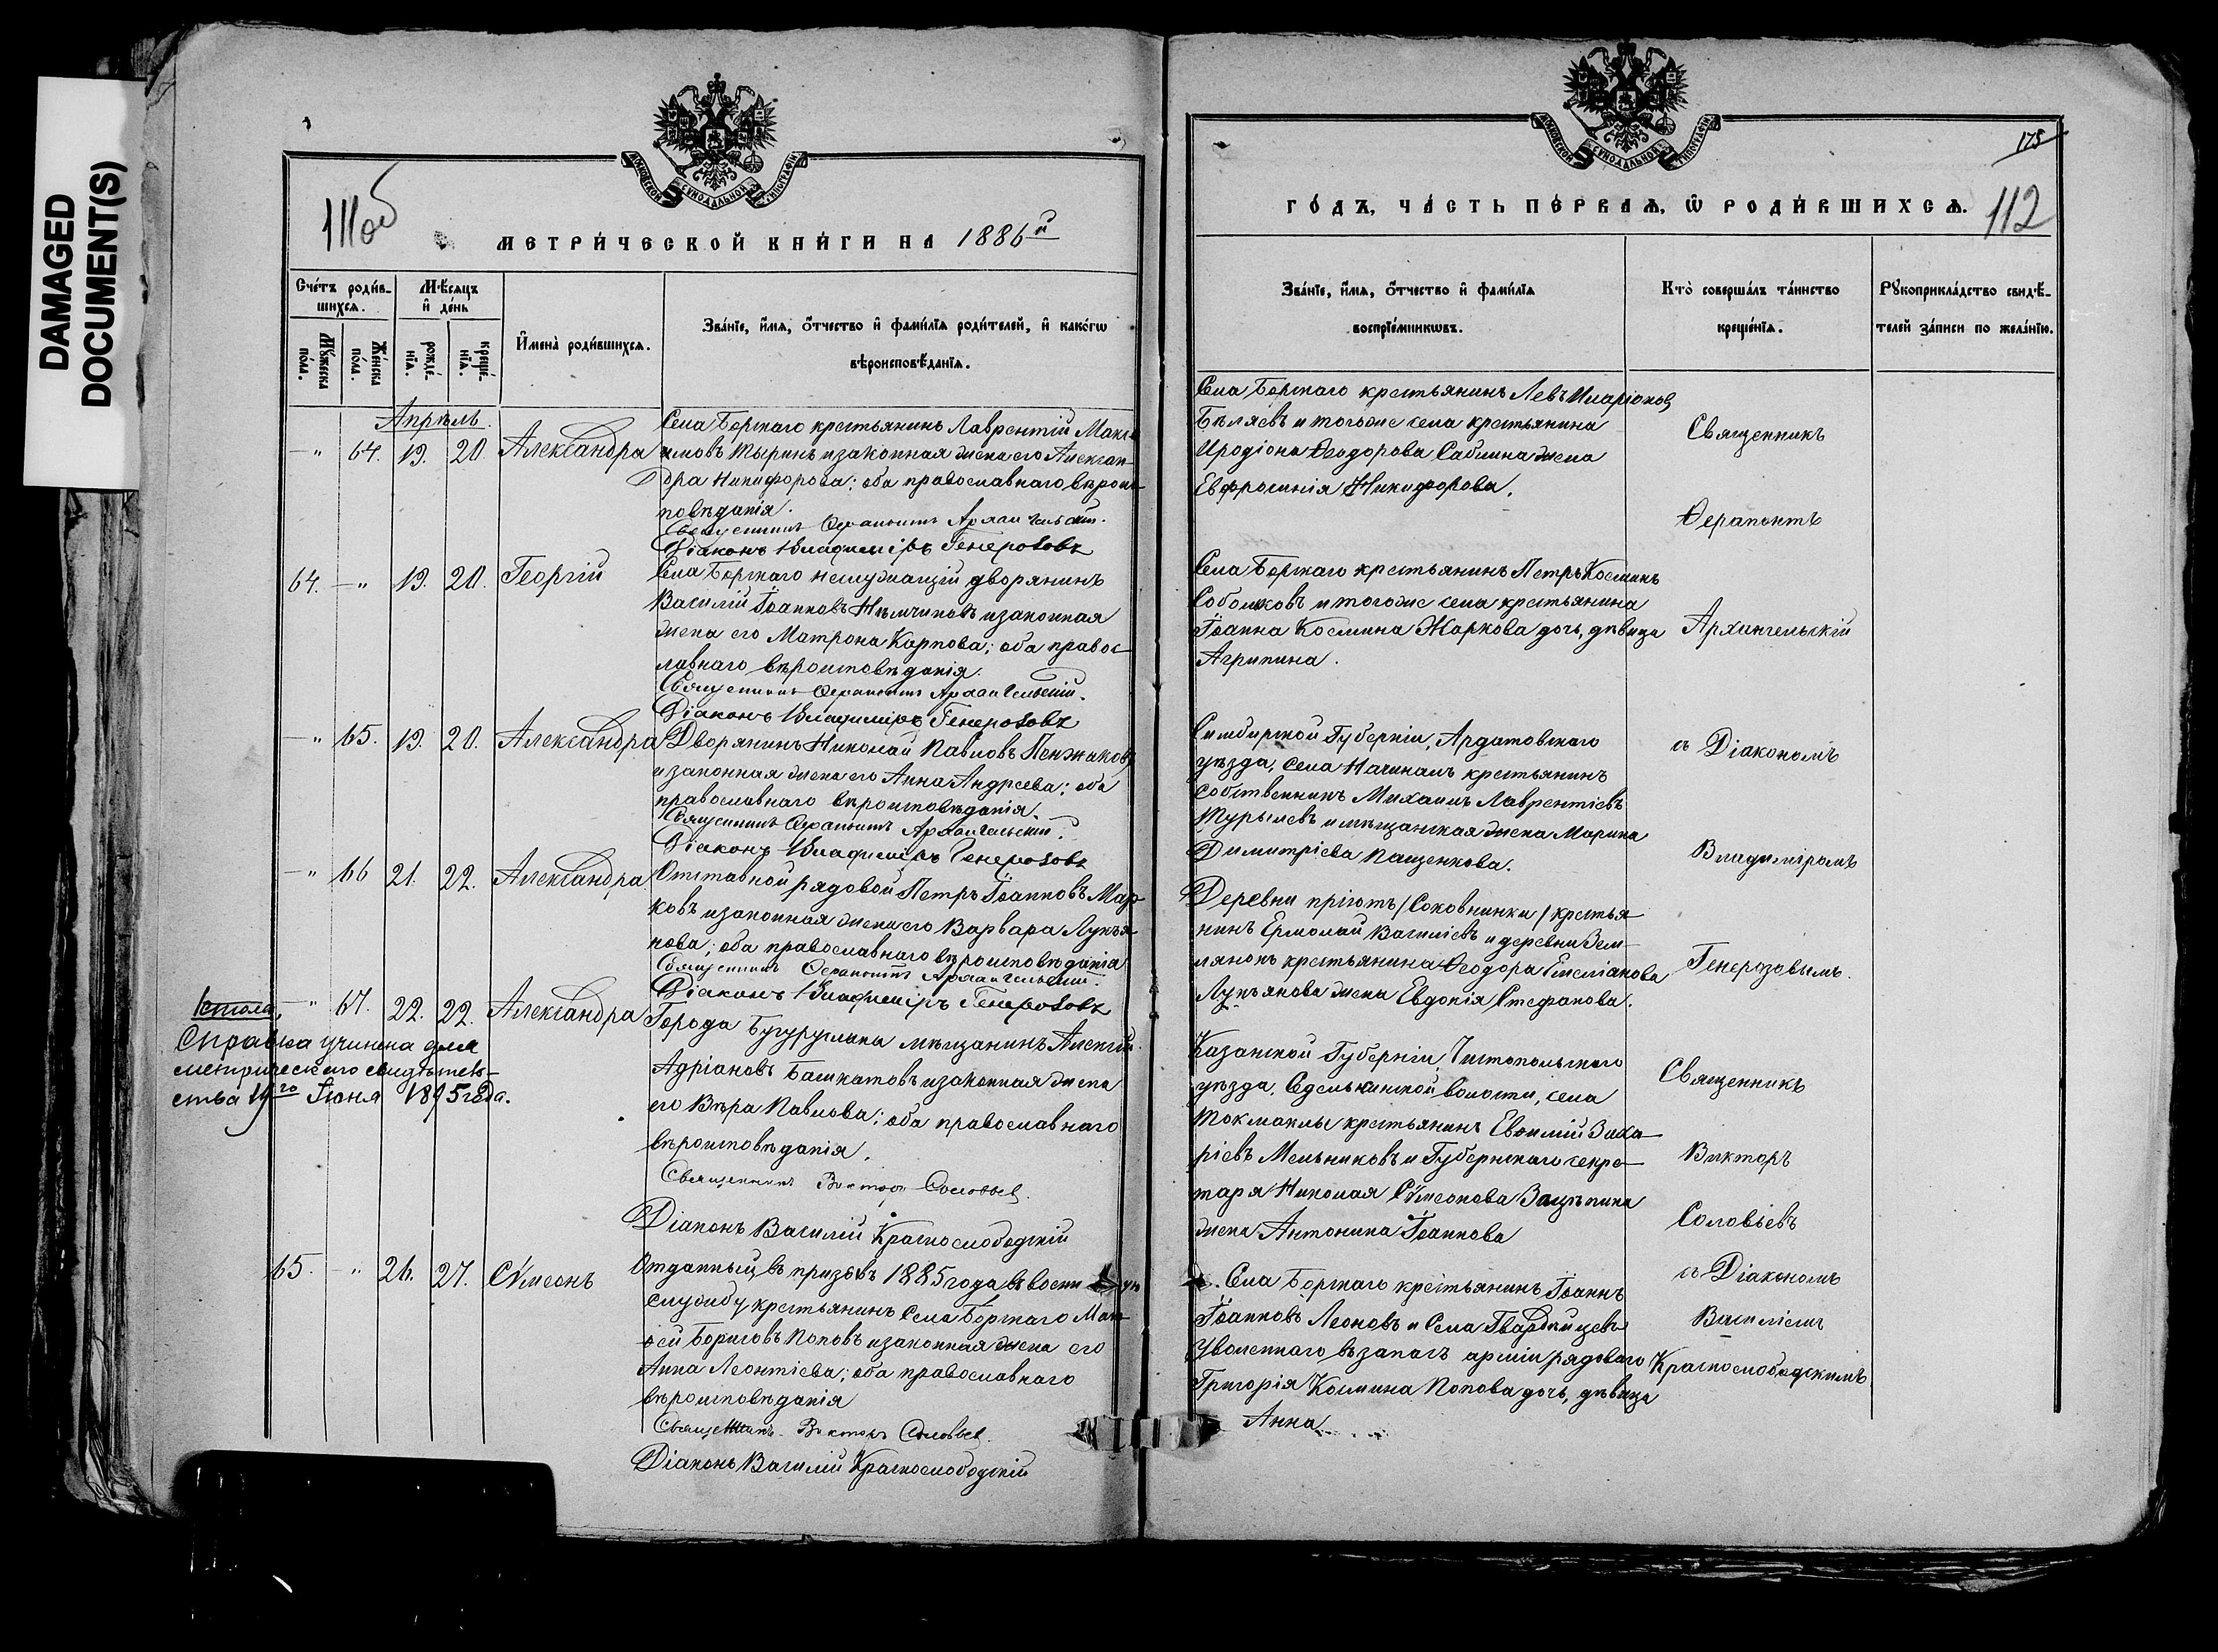 DAMAGED
DOCUMENT(S)
МОСКОВСКОЙ СѴНОДАЛЬНОЙ ТИПОГРАФІИ
111об
МЕТРИ́ЧЕСКОЙ КНИ́ГИ НА 1886й
Сче́тъ роди́в-
шихсѧ.
Мѣ́сѧцъ
и҆ де́нь
Мꙋ́жеска
по́ла.
Же́нска
по́ла.
рожде́-
нїѧ.
креще́-
нїѧ.
И҆мена̀ роди́вшихсѧ.
Зва́нїе, и҆́мѧ, ѻ҆́тчество и҆ фами́лїѧ роди́телей, и҆ како́гѡ
вѣроисповѣ́данїѧ.
Апрѣль.
—„ 64. 19. 20 Александра
Села Борскаго крестьянинъ Лаврентій Макс-
имовъ Тыринъ и законная жена его Алексан-
дра Никифорова; оба православнаго вѣроис-
повѣданія.
Священникъ Ѳерапонтъ Архангельскій.
Діаконъ Владиміръ Генерозовъ
64. —„ 19. 20. Георгій
Села Борскаго неслужащій дворянинъ
Василій Іоанновъ Нѣмчиновъ и законная
жена его Матрона Карпова; оба правос-
лавнаго вѣроисповѣданія.
Священникъ Ѳерапонтъ Архангельскій.
Діаконъ Владиміръ Генерозовъ
—„ 65. 19. 20. Александра
Дворянинъ Николай Павловъ Пенжаковъ
и законная жена его Анна Андреева; оба
православнаго вѣроисповѣданія.
Священникъ Ѳерапонтъ Архангельскій.
Діаконъ Владиміръ Генерозовъ
—„ 66 21. 22. Александра
Отставной рядовой Петръ Іоанновъ Мар-
ковъ и законная жена его Варвара Лукъя-
нова; оба православнаго вѣроисповѣданія
Священникъ Ѳерапонтъ Архангельскій.
Діаконъ Владиміръ Генерозовъ
—„ 67. 22. 22. Александра
Справка учинена для
метрическаго свидѣтель-
ства 19го Іюня 1895 года.
Города Бугуруслана мѣщанинъ Алексій
Адріановъ Башкатовъ и законная жена
его Вѣра Павлова; оба православнаго
вѣроисповѣданія.
Священникъ Викторъ Соловьев.
Діаконъ Василій Краснослободскій
65. —„ 26. 27. Сѵмеонъ
Отданный въ призывъ 1885 года въ военную
службу крестьянинъ Села Борскаго Мат-
ѳей Борисовъ Поповъ и законная жена его
Анна Леонтіева; оба православнаго
вѣроисповѣданія
Священникъ Викторъ Соловьев.
Діаконъ Василій Краснослободскій
МОСКОВСКОЙ СѴНОДАЛЬНОЙ ТИПОГРАФІИ
175
112
ГО́ДЪ, ЧА́СТЬ ПЕ́РВАѦ, Ѡ҆ РОДИ́ВШИХСѦ.
Зва́нїе, и҆́мѧ, ѻ҆́тчество и҆ фами́лїѧ
воспрїе́мникѡвъ.
Кто̀ соверша́лъ та́инство
креще́нїѧ.
Рꙋкоприкла́дство свидѣ́-
телей за́писи по жела́нїю.
Села Борскаго крестьянинъ Левъ Иларіоновъ
Бѣляевъ и тогоже села крестьянина
Иродіона Ѳеодорова Саблина жена
Евфросинія Никифорова.
Села Борскаго крестьянинъ Петръ Косминъ
Соболковъ и тогоже села крестьянина
Іоанна Космина Жаркова дочь, дѣвица
Агрипина.
Симбирской Губерніи, Ардатовскаго
уѣзда, села Начиналъ крестьянинъ
собственникъ Михаилъ Лаврентіевъ
Турылевъ и мѣщанская жена Марина
Димитріева Пащенкова.
Деревни пріютъ/Соковнинки/крестья-
нинъ Ермолай Василіевъ и деревни Зем-
лянокъ крестьянина Ѳеодора Емеліанова
Лукъянова жена Евдокія Стефанова.
Казанской Губерніи, Чистопольскаго
уѣзда, волости, села
Токмаклы крестьянинъ Евѳимій Заха-
ріевъ Мельниковъ и Губернскаго секре-
таря Николая Сѵмеонова Зацѣпина
жена Антонина Іоаннова
Села Борскаго крестьянинъ Іоаннъ
Іоанновъ Леоновъ и Села Гвардѣйцевъ
Уволеннаго въ запасъ арміи рядоваго
Григорія Космина Попова дочь, дѣвица
Анна
Священникъ
Ѳерапонтъ
Архангельскій
съ Діакономъ
Владиміромъ
Генерозовымъ.
Священникъ
Викторъ
Соловьевъ
съ Діакономъ
Василіемъ
Краснослободскимъ